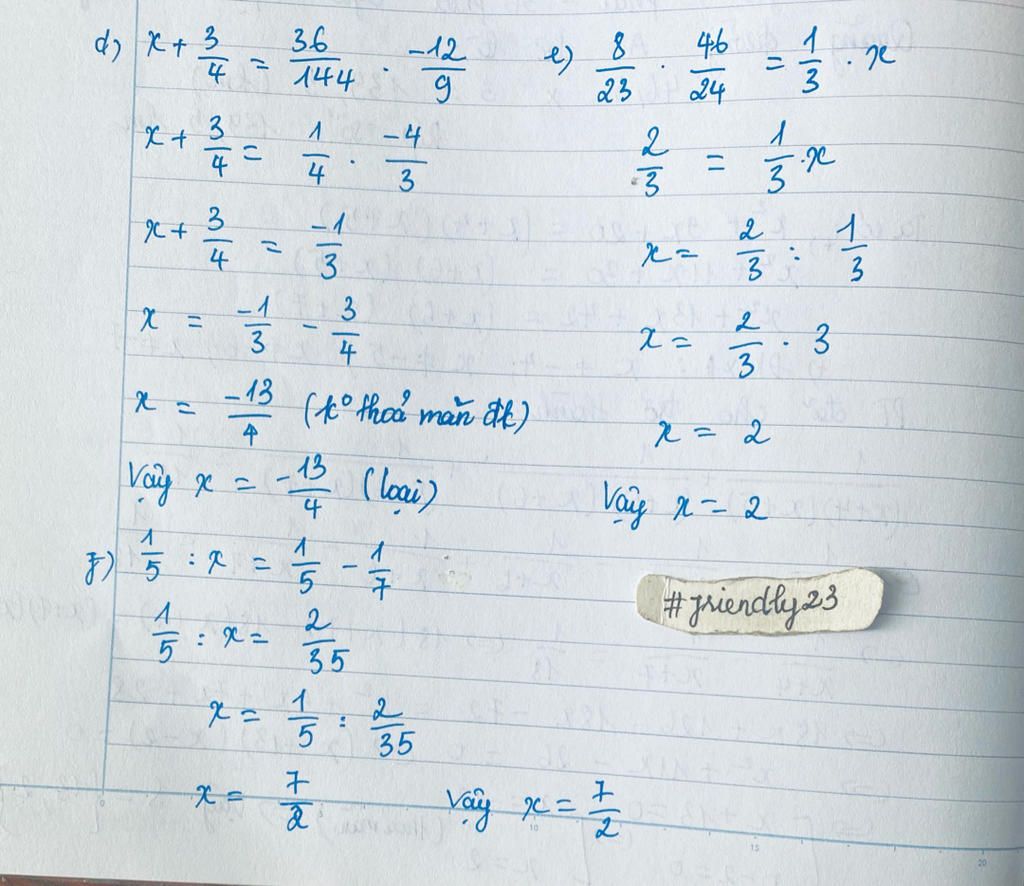 d) x + 3/4 = 36/144 . -12/9
x + 3/4 = 1/4 . -4/3
x + 3/4 = -1/3
x = -1/3 - 3/4
x = -13/4 (k° thoả mãn đk)
Vậy x = -13/4 (loại)
e) 8/23 . 46/24 = 1/3 . x
2/3 = 1/3 . x
x = 2/3 : 1/3
x = 2/3 . 3
x = 2
Vậy x = 2
f) 1/5 : x = 1/5 - 1/7
1/5 : x = 2/35
x = 1/5 : 2/35
x = 7/2
Vậy x = 7/2
#friendly23